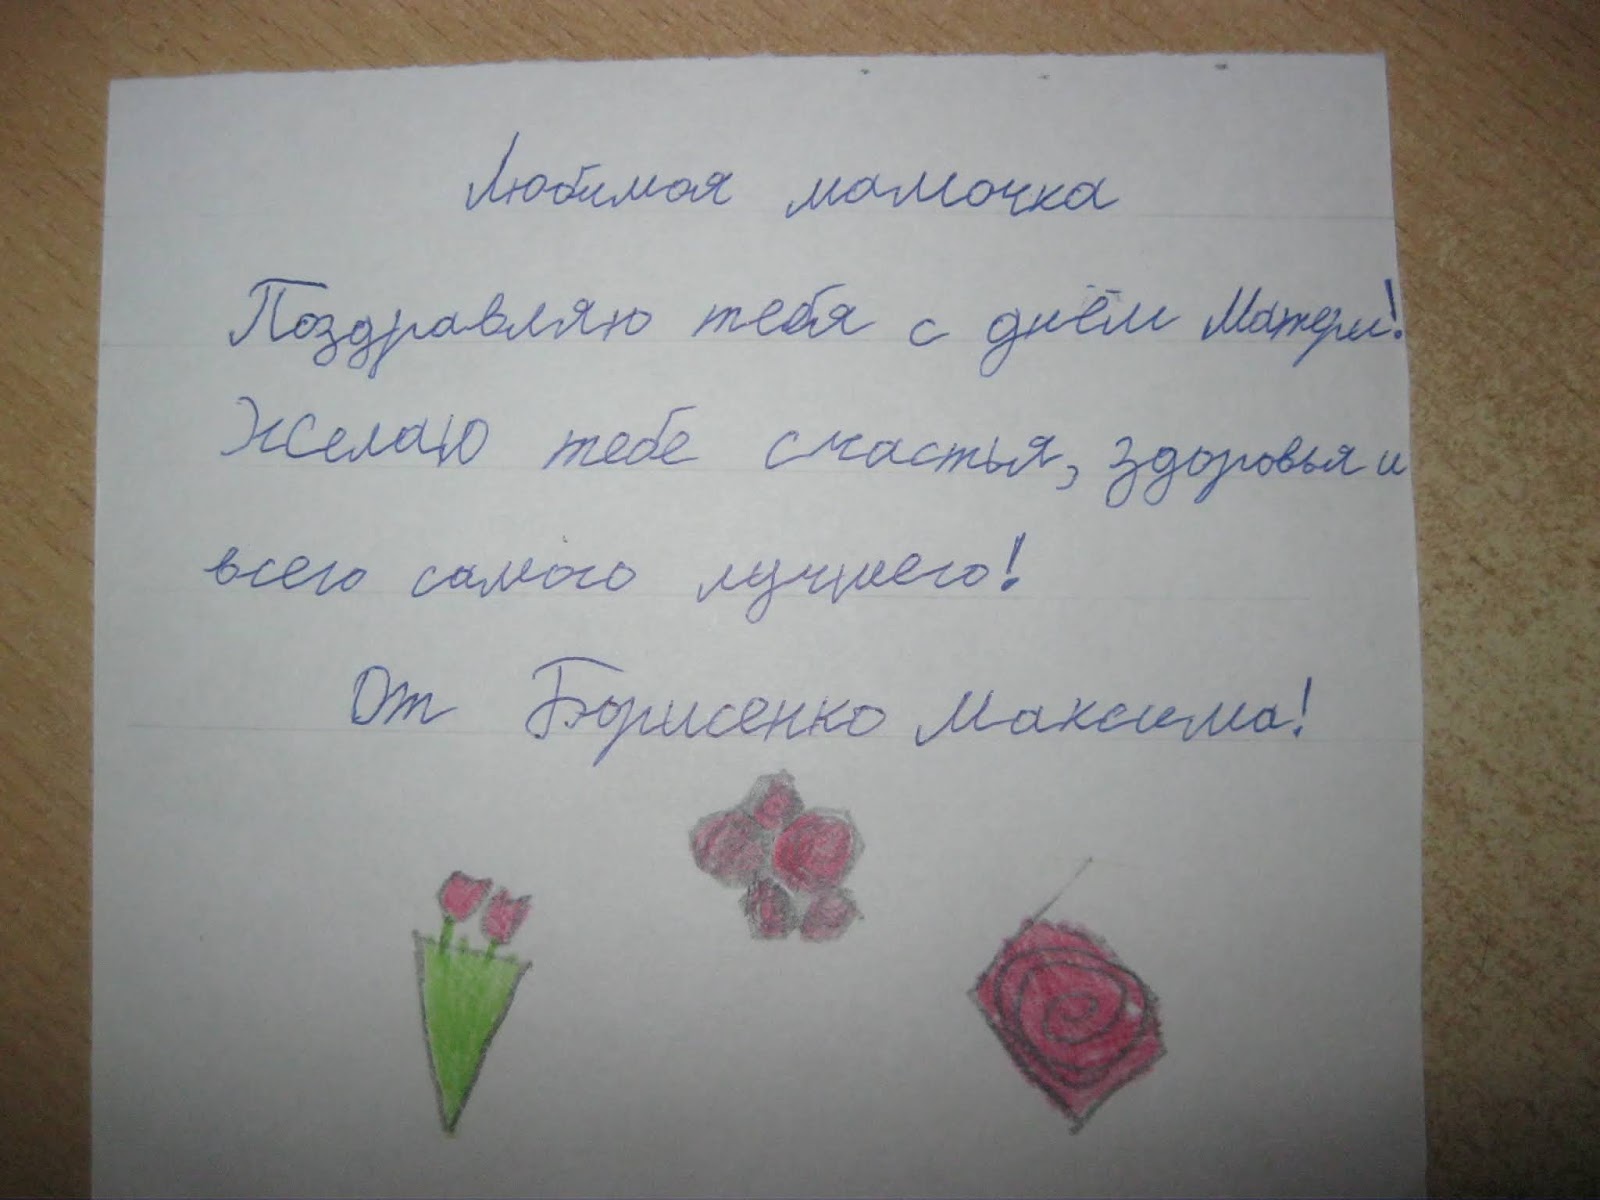 Любимая мамочка
Поздравляю тебя с днём Матери!
Желаю тебе счастья, здоровья и
всего самого лучшего!
От Борисенко Максима!